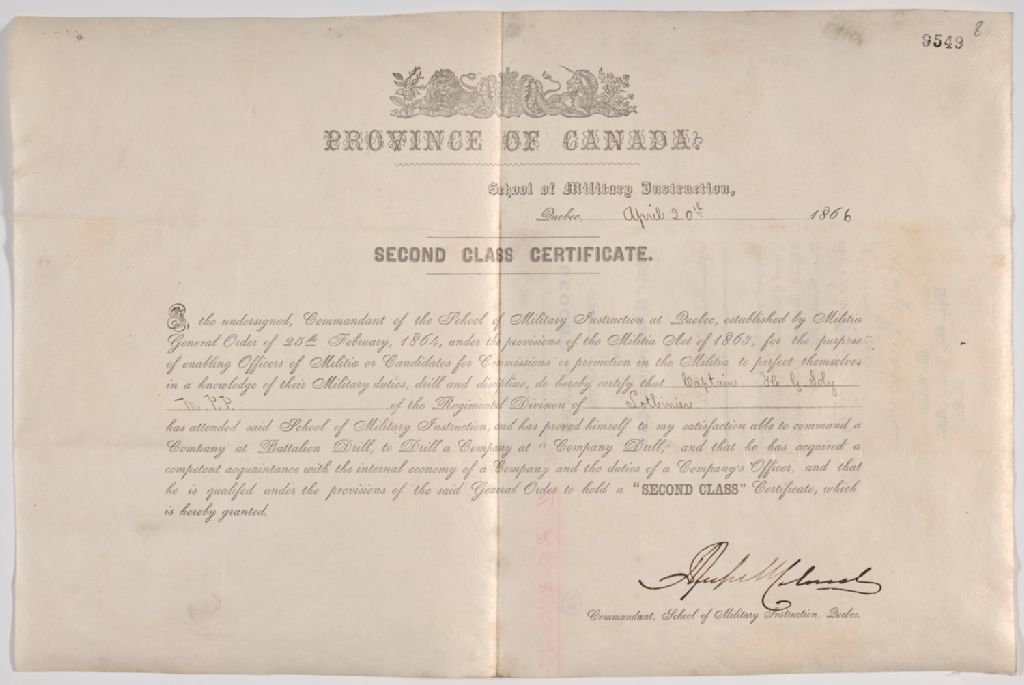 9549 8
PROVINCE OF CANADA.
School of Military Instruction,
Quebec, April 20th 1866
SECOND CLASS CERTIFICATE.
I, the undersigned, Commandant of the School of Military Instruction at Quebec, established by Militia
General Order of 25th February, 1864, under the provisions of the Militia Act of 1863, for the purpose
of enabling Officers of Militia or Candidates for Commissions or promotion in the Militia to perfect themselves
in a knowledge of their Military duties, drill and discipline, do hereby certify that Captain H. G. Joly
M.P.P. of the Regimental Division of Lotbinier
has attended said School of Military Instruction, and has proved himself to my satisfaction able to command a
Company at Battalion Drill, to Drill a Company at "Company Drill," and that he has acquired a
competent acquaintance with the internal economy of a Company and the duties of a Company's Officer, and that
he is qualifed under the provisions of the said General Order to hold a "SECOND CLASS" Certificate, which
is hereby granted.
Commandant, School of Military Instruction, Quebec.